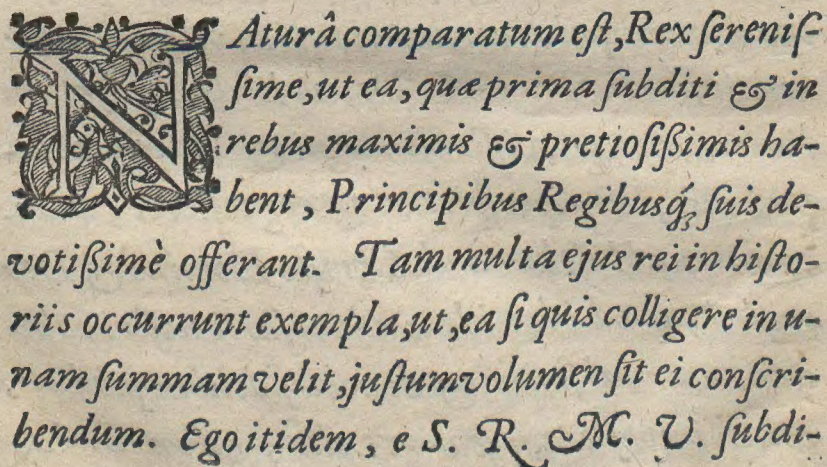 NAturâ comparatum eſt, Rex ſereniſ-
ſime, ut ea, quæ prima ſubditi & in
rebus maximis & pretioſiſſimis ha-
bent, Principibus Regibusq́; ſuis de-
votiſſimè offerant. Tam multa ejus rei in hiſto-
riis occurrunt exempla, ut, ea ſi quis colligere in u-
nam ſummam velit, juſtum volumen ſit ei conſcri-
bendum. Ego itidem, e S. R. M. V. ſubdi-